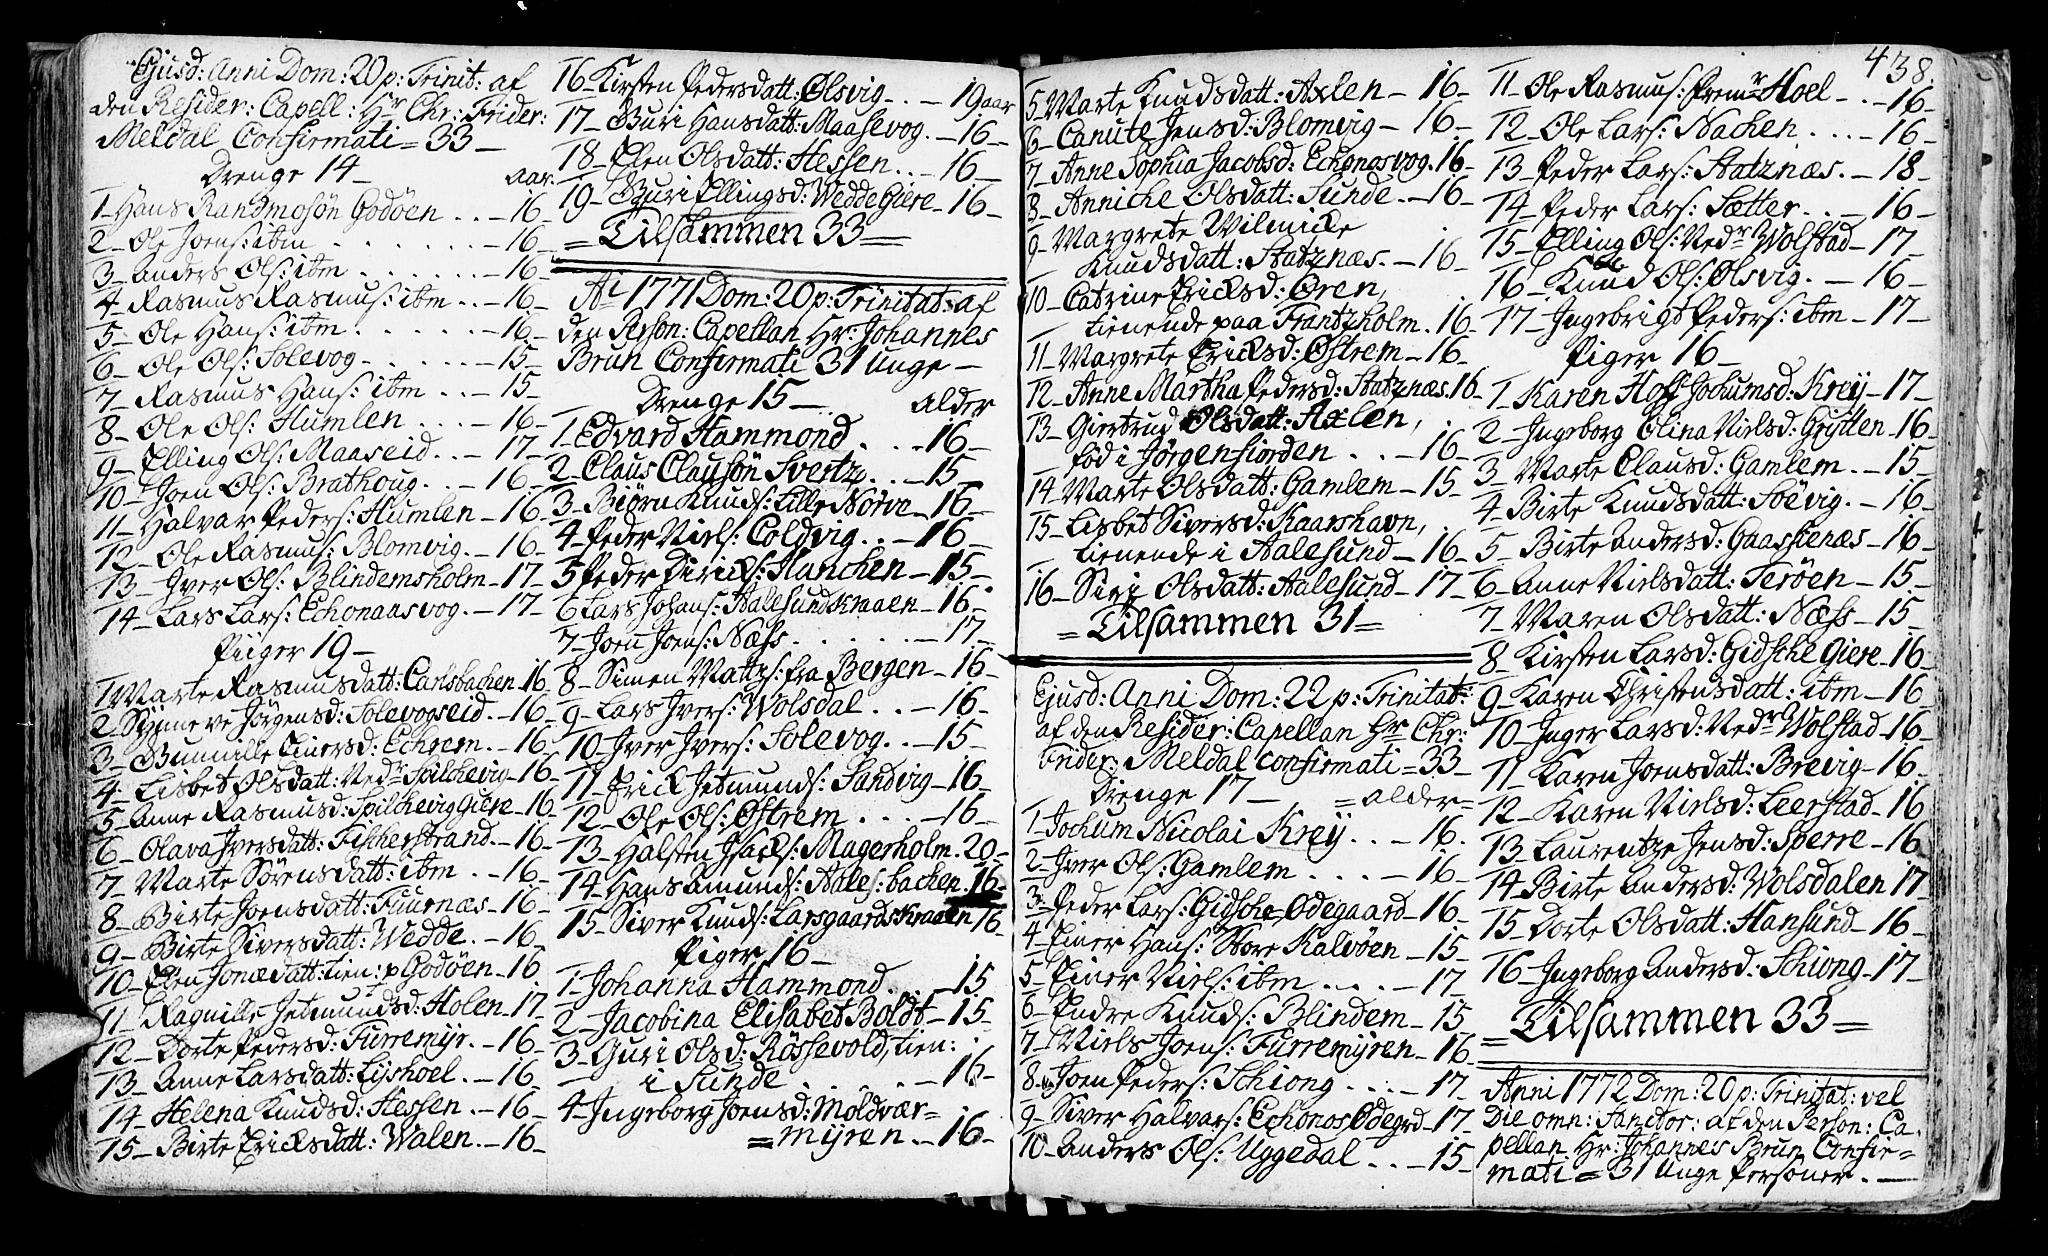 Ejusd: Anni Dom: 20 p: Trinit: af
den Resider: Capell: Hr Chr: Frider:
Meldal Confirmati = 33 —
Drenge 14 — aar.
1 — Hans Randmosøn Godøen . . — 16 —
2 — Ole Joens: ibm . . . . . . — 16 —
3 — Anders Ols: ibm . . . . . . — 16 —
4 — Rasmus Rasmus: ibm . . — 16 —
5 — Ole Hans: ibm . . . . . . — 16 —
6 — Ole Ols: Solevog — . . . . . — 15 —
7 — Rasmus Hans: ibm . . — 15 —
8 — Ole Ols: Humlen . . . . — 16 —
9 — Elling Ols: Maaseid . . — 17 —
10 — Joen Ols: Brathoug . . — 16 —
11 — Halvar Peders: Humlen — 16 —
12 — Ole Rasmus: Blomvig . — 16 —
13 — Iver Ols: Blindemsholm — 17 —
14 — Lars Lars: Echonaasvog . — 17 —
Piiger 19 —
1 Marte Rasmusdatt: Carlsbachen 16
2 — Synneve Jørgensd: Solevogseid . — 16 —
3 — Gunnille Einersd: Echrem . — 16 —
4 — Lisbet Olsdatt: Nedr Spilchevig — 16 —
5 — Anne Rasmusd: Spilchevig Giere — 16
6 — Olava Iversdatt: Fischerstrand . — 16 —
7 — Marte Sørensdatt: ibm . . — 16 —
8 — Birte Joensdatt: Fuurnæs — 16 —
9 — Birte Siversdatt: Wedde . — 16 —
10 — Elen Jonædatt: tien: p Godøen — 16
11 — Ragnille Jetmundsd: Holen 17
12 — Dorte Pedersd: Furremÿr . — 16 —
13 — Anne Larsdatt: Lyshoel . — 16 —
14 — Helena Knudsd: Hessen . — 16 —
15 — Birte Ericksdatt: Walen . — 16 —
16 — Kirsten Pedersdatt: Ølsvig — . — 19 aar
17 — Guri Hansdatt: Maasevog . — 16 —
18 — Elen Olsdatt: Hessen . . — 16 —
19 — Guri Ellingsd: Wedde Giere — 16 —
= Tilsammen 33 =
Ao 1771 Dom: 20 p: Trinitat: af
den Person: Capellan Hr: Johannes
Brun Confirmati 31 Unge —
Drenge 15 — alder
1 — Edvard Hammond . . — 16 —
2 — Claus Clausøn Svertz . . — 15 —
3 — Biørn Knuds: Lille Nørve — 16 —
4 — Peder Niels: Coldvig . . — 16 —
5 Peder Dirichs: Hanchen — 15 —
6 Lars Johans: Aalesundkraaen — 16 —
7 — Joen Joens: Næss . . . . . — 17 —
8 — Simen Mattzs: fra Bergen — 16 —
9 — Lars Ivers: Wolsdal . . — 16 —
10 Iver Ivers: Solevog . . — 15 —
11 — Erick Jetmunds: Sandvig — 16 —
12 — Ole Ols: Østrem . . . — 16 —
13 — Halsten Isacks: Magerholm . 20 —
14 — Hans Amunds: Aales: bachen . 16 —
15 — Siver Knuds: Larsgaardskraaen 16 —
Piger 16 —
1 — Johanna Hammond . . — 15
2 — Jacobina Elisabet Boldt — 15 —
3 — Guri Olsd: Røssevold, tien:
i Sunde . . . . . — 16 —
4 — Ingeborg Joensd: Moldvær =
= mÿren . — 16 —
438.
5 — Marte Knudsdatt: Axlen — 16 —
6 — Canute Jensd: Blomvig — 16 —
7 — Anne Sophia Jacobsd: Echonosvog . 16 —
8 — Anniche Olsdatt: Sunde . — 16 —
9 — Margrete Wilmicke
Knudsdatt: Statznæs . — 16 —
10 — Catrine Ericksd: Øren,
tienende paa Frantzholm . 16 —
11 — Margrete Ericksd: Østrem — 16 —
12 — Anne Martha Pedersd: Statznæs . 16 —
13 — Giertrud Olsdatt: Axlen,
fød i Jørgenfiorden . . . — 16 —
14 — Marte Olsdatt: Gamlem — 15 —
15 — Lisbet Siversd: Kaarshavn,
tienende i Aalesund — 16 —
16 — Siri Olsdatt: Aalesund — 17 —
= Tilsammen 31 =
Ejusd: Anni Dom: 22 p: Trinitat:
af den Resider: Capellan Hr Chr:
Frider: Meldal confirmati = 33 —
Drenge 17 — = alder =
1 — Jochum Nicolai Kreÿ . . — 16 .
2 — Iver Ols: Gamlem . . . . — 16 —
3 — Peder Lars: Gidsche Ødegaard — 16 —
4 — Einer Hans: Store Kalvøen — 15 —
5 — Einer Niels: ibm . . . . — 17 —
6 — Endre Knuds: Blindem — 15 —
7 — Niels Joens: Furremÿren — 16 —
8 — Joen Peders: Schiong . . . — 17 —
9 — Siver Halvars: Echonos Ødegrd — 17 —
10 — Anders Ols: Uggedal . . — 15 —
11 — Ole Rasmus: Fremr Hoel — . — 16 —
12 — Ole Lars: Nachen . . . — 16 —
13 — Peder Lars: Statznæs . — 18 —
14 — Peder Lars: Sætter . . — 16 —
15 — Elling Ols: Nedr Wolstad — 17 —
16 — Knud Ols: Ølsvig . — 16 —
17 — Ingebrigt Peders: ibm — 17 —
Piger 16 —
1 — Karen Hoff Jochumsd: Kreÿ — 17 —
2 — Ingeborg Elina Nielsd: Grÿtten — 16 —
3 — Marte Clausd: Gamlem . — 15 —
4 — Birte Knudsdatt: Søevig . — 16 —
5 — Birte Andersd: Gaasstenæs — 16 —
6 — Anne Nielsdatt: Terøen — 15 —
7 — Maren Olsdatt: Næss — 15 —
8 — Kirsten Larsd: Gidsche Giere — 16 —
9 — Karen Christensdatt: ibm — 16
10 — Inger Larsd: Nedr Wolstad — 16 —
11 — Karen Joensdatt: Brevig — 16 —
12 — Karen Nielsd: Leerstad — 16
13 — Laurentze Jensd: Sperre — 16
14 — Birte Andersd: Wolsdalen 17
15 — Dorte Olsdatt: Hansund — 16 —
16 — Ingeborg Andersd: Schiong — 17 —
= Tilsammen 33 =
Anni 1772 Dom: 20 p: Trinitat: vel
Die omn: Sanctor: af den Person: Ca-
pellan Hr: Johannes Brun Confir =
mati = 31 Unge Personer . —